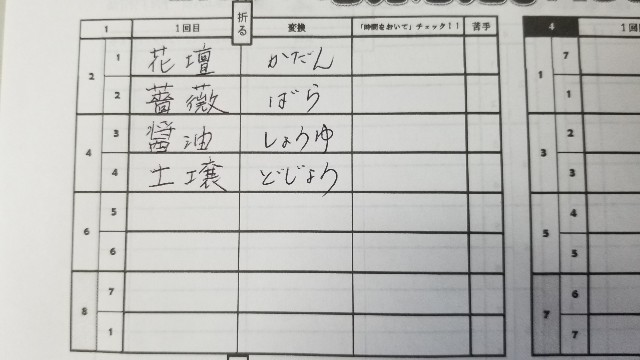 折る
1 1回目 変換 「時間をおいて」チェック!! 苦手
2 1 花壇 かだん
2 薔薇 ばら
4 3 醤油 しょうゆ
4 土壌 どじょう
6 5
6
8 7
1
4 1回
1 7
1
3 2
3
5 4
5
7 6
7